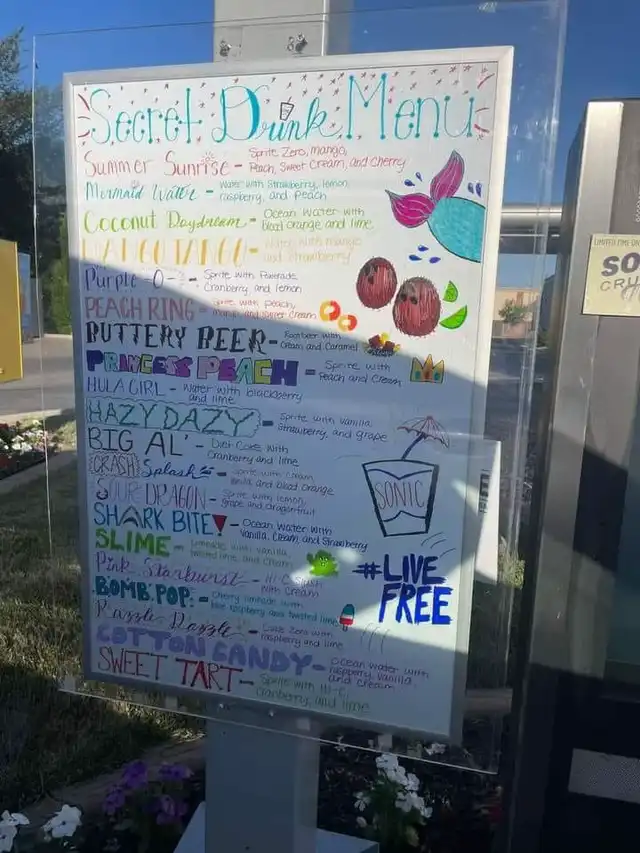 Secret Drink Menu
Summer Sunrise - Sprite Zero, mango,
Peach, Sweet Cream, and Cherry
Mermaid Water - Water with Strawberry, lemon,
raspberry, and Peach
Coconut Daydream - Ocean Water with
blood orange and lime
MANGO TANGO - Water with mango
and Strawberry
Purple -O- - Sprite with Powerade,
Cranberry and lemon
PEACH RING - Sprite with peach,
and sweet cream
BUTTERY BEER - Rootbeer with
Cream and Caramel
PRINCESS PEACH - Sprite with
Peach and Cream
HULA GIRL - Water with blackberry
and lime
HAZY DAZY - Sprite with vanilla,
Strawberry, and grape
BIG AL' - Diet Coke with
Cranberry and lime
CRASH Splash - Sprite with Cream,
and blood Orange
SOUR DRAGON - Sprite with lemon,
grape and dragonfruit
SHARK BITE - Ocean Water with
Vanilla, Cream, and Strawberry
SLIME - Limeade with vanilla,
twisted lime, and cream
Pink Starburst - Hi-C Slush
with Cream
BOMB POP - Cherry limeade with
blue raspberry and twisted lime
Razzle Dazzle - Coke Zero with
raspberry and lime
COTTON CANDY - Ocean water with
raspberry, vanilla,
and cream
SWEET TART - Sprite with Hi-C,
Cranberry, and lime
SONIC
#LIVE
FREE
LIMITED TIME
SO